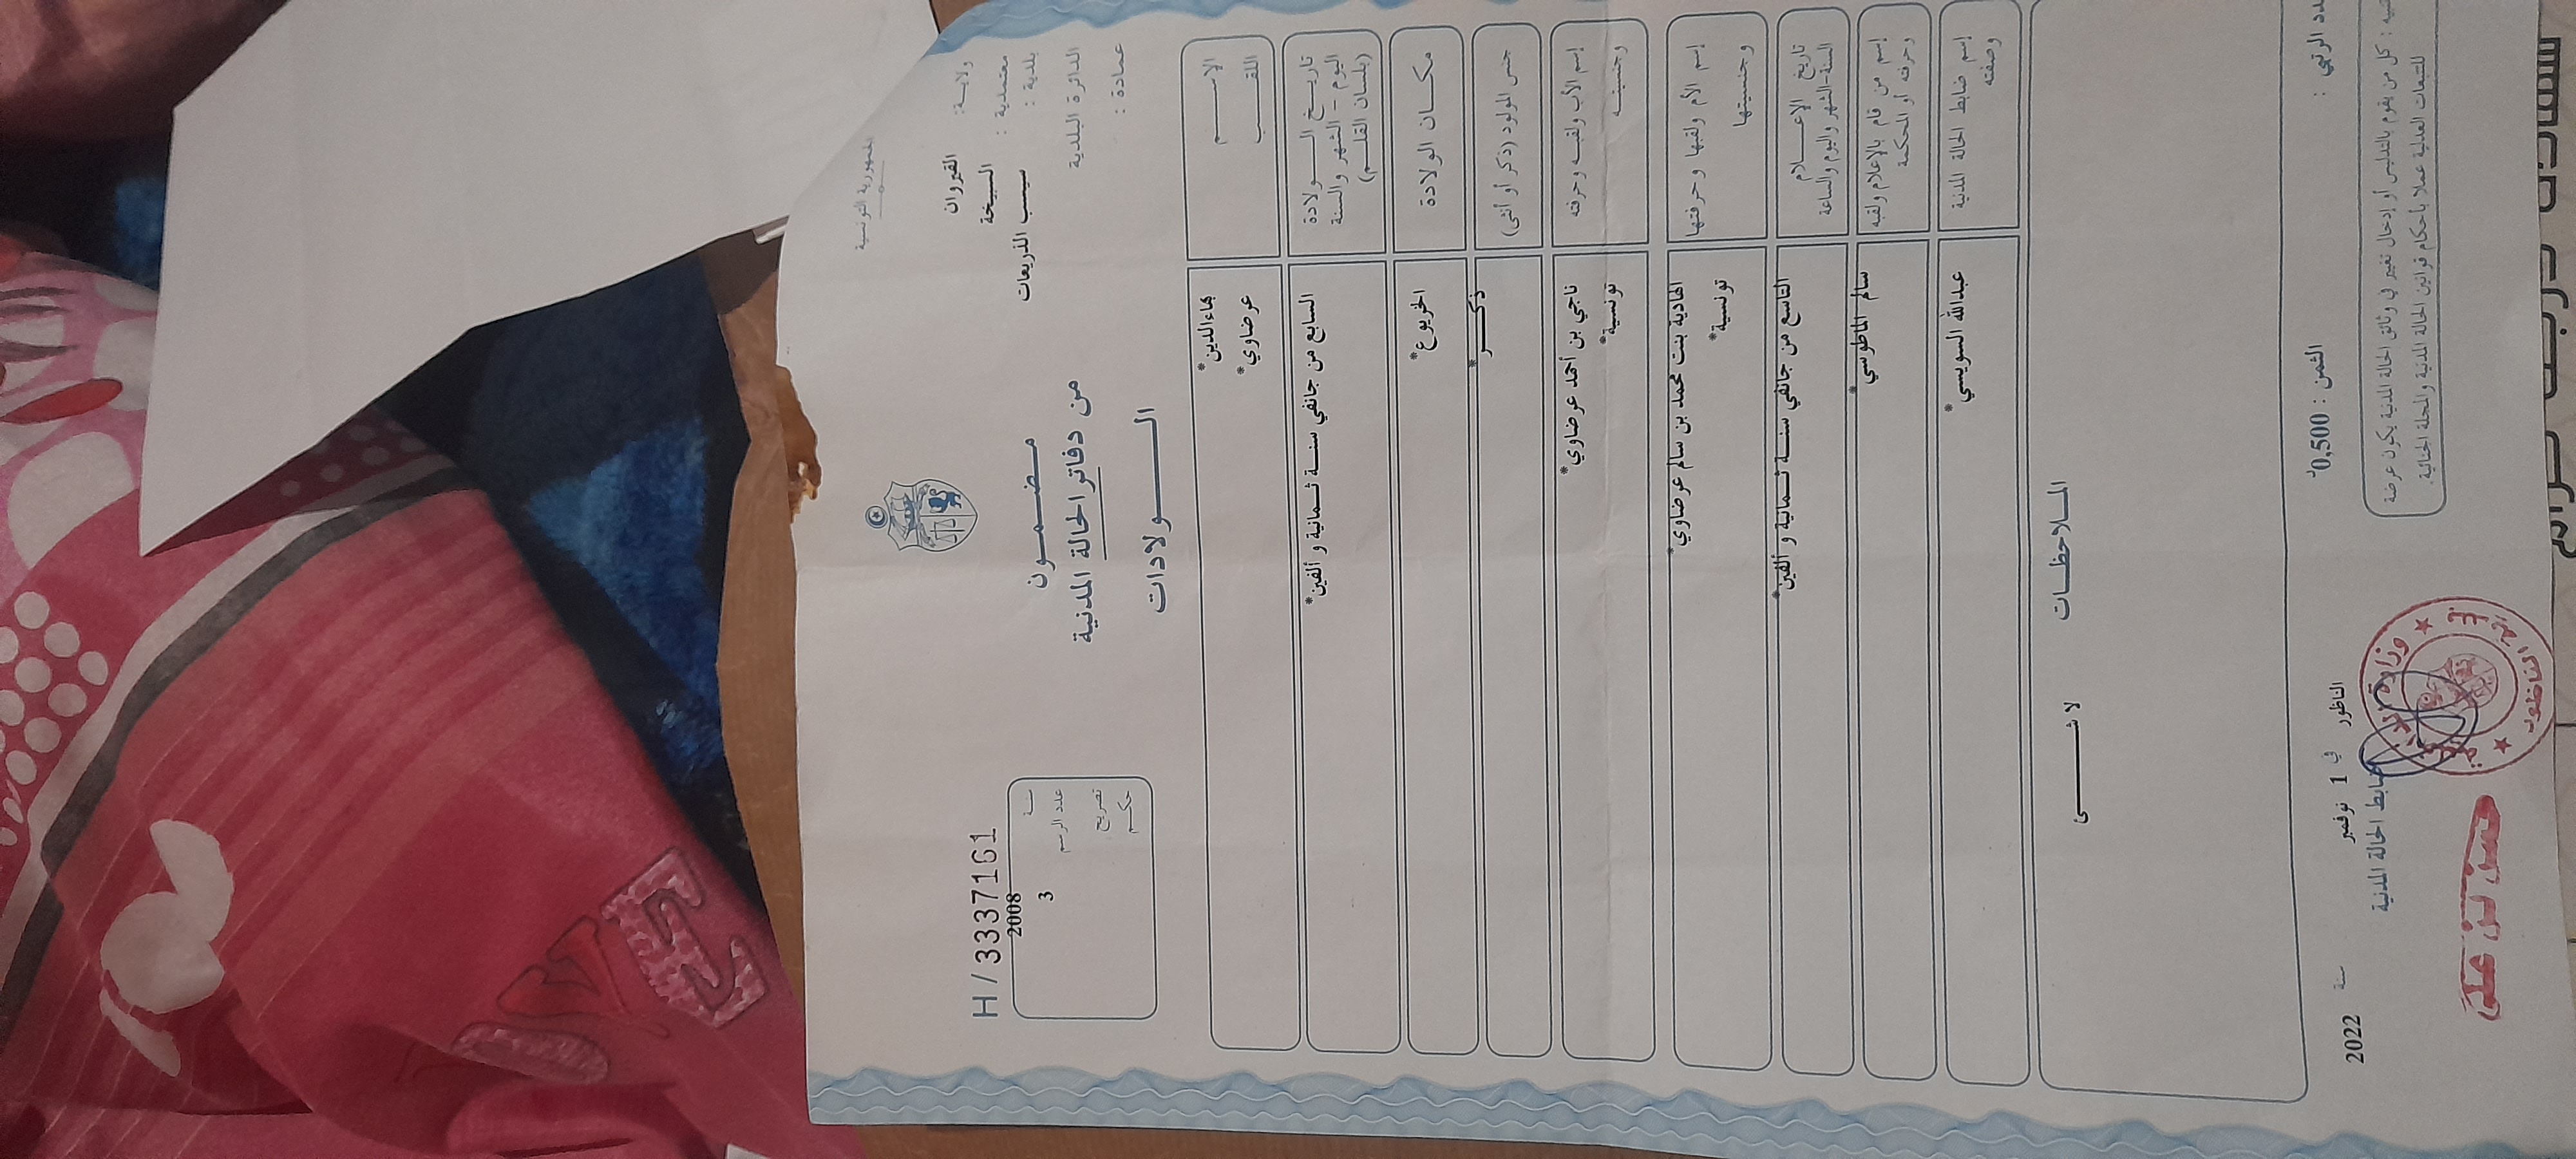 الجمهورية التونسية
ولايـة: القيروان
معتمدية : السبيخة
بلدية : سيسب الذريعات
الدائرة البلدية
عمادة :
H/33371
سنة 2008
عدد الرسم 3
تصريح
حكم
مضمـــون
من دفاتر الحالة المدنية
الـــولادات
الإســـم بهاءالدين*
اللقـــب عرضاوي*
تاريـخ الـــولادة
اليوم - الشهر والسنة
(بلسان القلـم)
السابع من جانفي سنـة ثـمانية و ألفين*
مكـــان الولادة الخريوع*
جنس المولود (ذكر أو أنثى) ذكـــر*
إسم الأب ولقبـه وحرفته ناجي بن أحمد عرضاوي*
وجنسيتـه تونسية*
إسم الأم ولقبها وحرفتها الهادية بنت محمد بن سالم عرضاوي*
وجنسيتها تونسية*
تاريخ الإعـــلام
السنة-الشهر واليوم والساعة
التاسع من جانفي سنـة ثـمانية و ألفين*
إسم من قام بالإعلام ولقبه سالم الماطوسي*
وحرفته أو المحكمة
إسم ضابط الحالة المدنية عبدالله السويسي*
وصفته
المــلاحظــات
لا شـــئ
الثمن : 0,500د
الناظور في 1 نوفمبر سنة 2022
ضابط الحالة المدنية
كل من يقوم بالتدليس أو إدخال تغيير في وثائق الحالة المدنية يكون عرضة
للتتبعات العدلية عملا بأحكام قوانين الحالة المدنية والمجلة الجنائية.